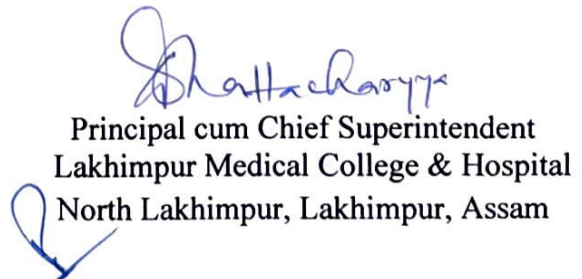 Bhattacharyya
Principal cum Chief Superintendent
Lakhimpur Medical College & Hospital
North Lakhimpur, Lakhimpur, Assam